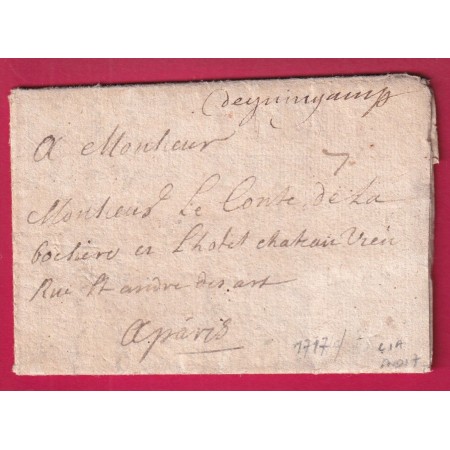 deguingamp
A Monsieur
7
Monsieur Le Conte de La
bochiere en Lhotel chateau vieu
Rue St andre des art
Aparis
1717